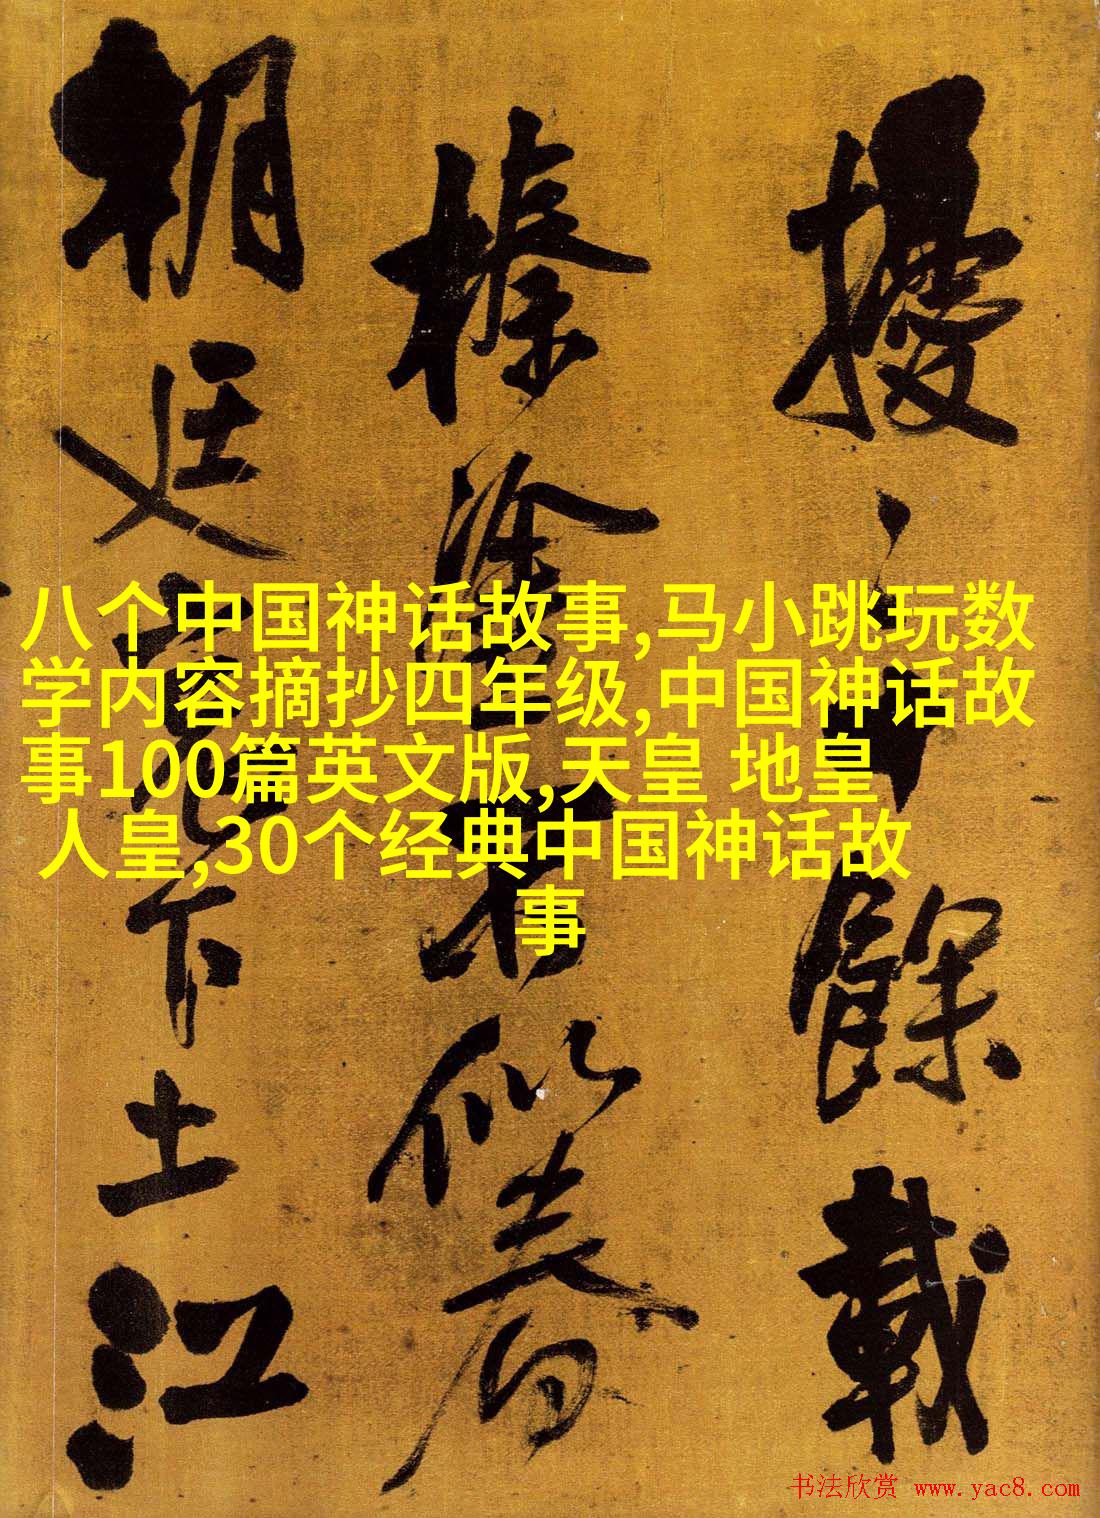 擾擾千餘載
榛塗不似昔
朝廷意
下土江
八个中国神话故事,马小跳玩数
学内容摘抄四年级,中国神话故
事100篇英文版,天皇 地皇
人皇,30个经典中国神话故
事
书法欣赏 www.yac8.com